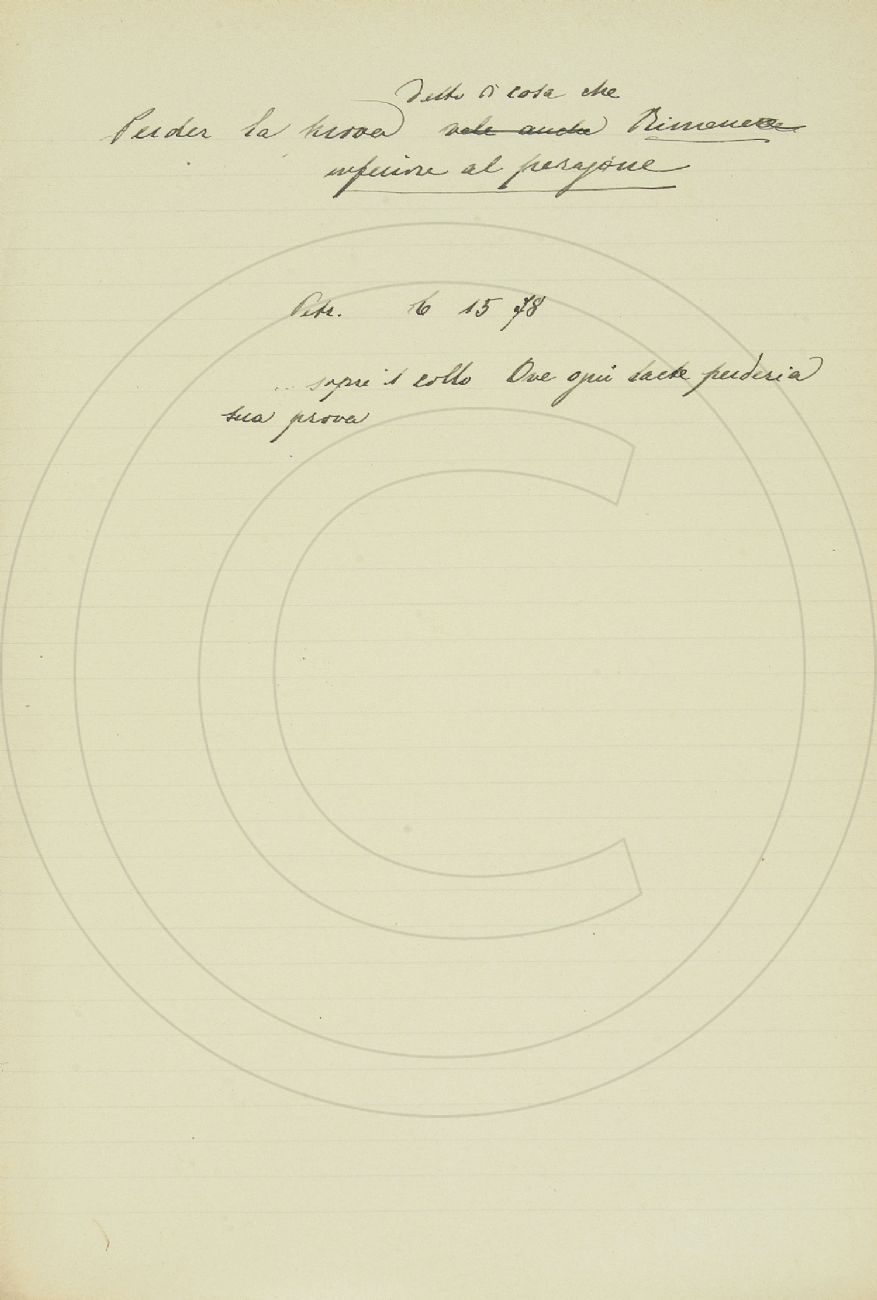 detto di cosa che
Perder la prova vale anche Rimanere
inferiore al paragone
Petr. 6 15 78
... sopra 'l collo Ove ogni latte perderia
sua prova